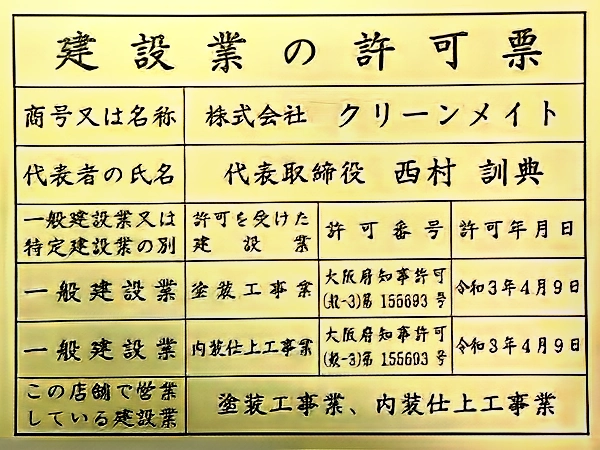 建設業の許可票
商号又は名称 株式会社 クリーンメイト
代表者の氏名 代表取締役 西村 訓典
一般建設業又は特定建設業の別 許可を受けた建設業 許可番号 許可年月日
一般建設業 塗装工事業 大阪府知事許可(般-3)第 155693 号 令和3年4月9日
一般建設業 内装仕上工事業 大阪府知事許可(般-3)第 155693 号 令和3年4月9日
この店舗で営業している建設業 塗装工事業、内装仕上工事業